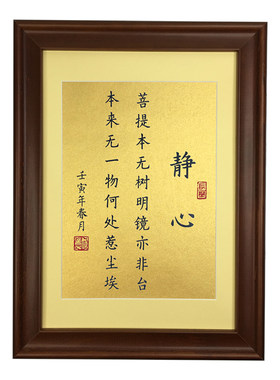 静心
菩提本无树明镜亦非台
本来无一物何处惹尘埃
壬寅年春月